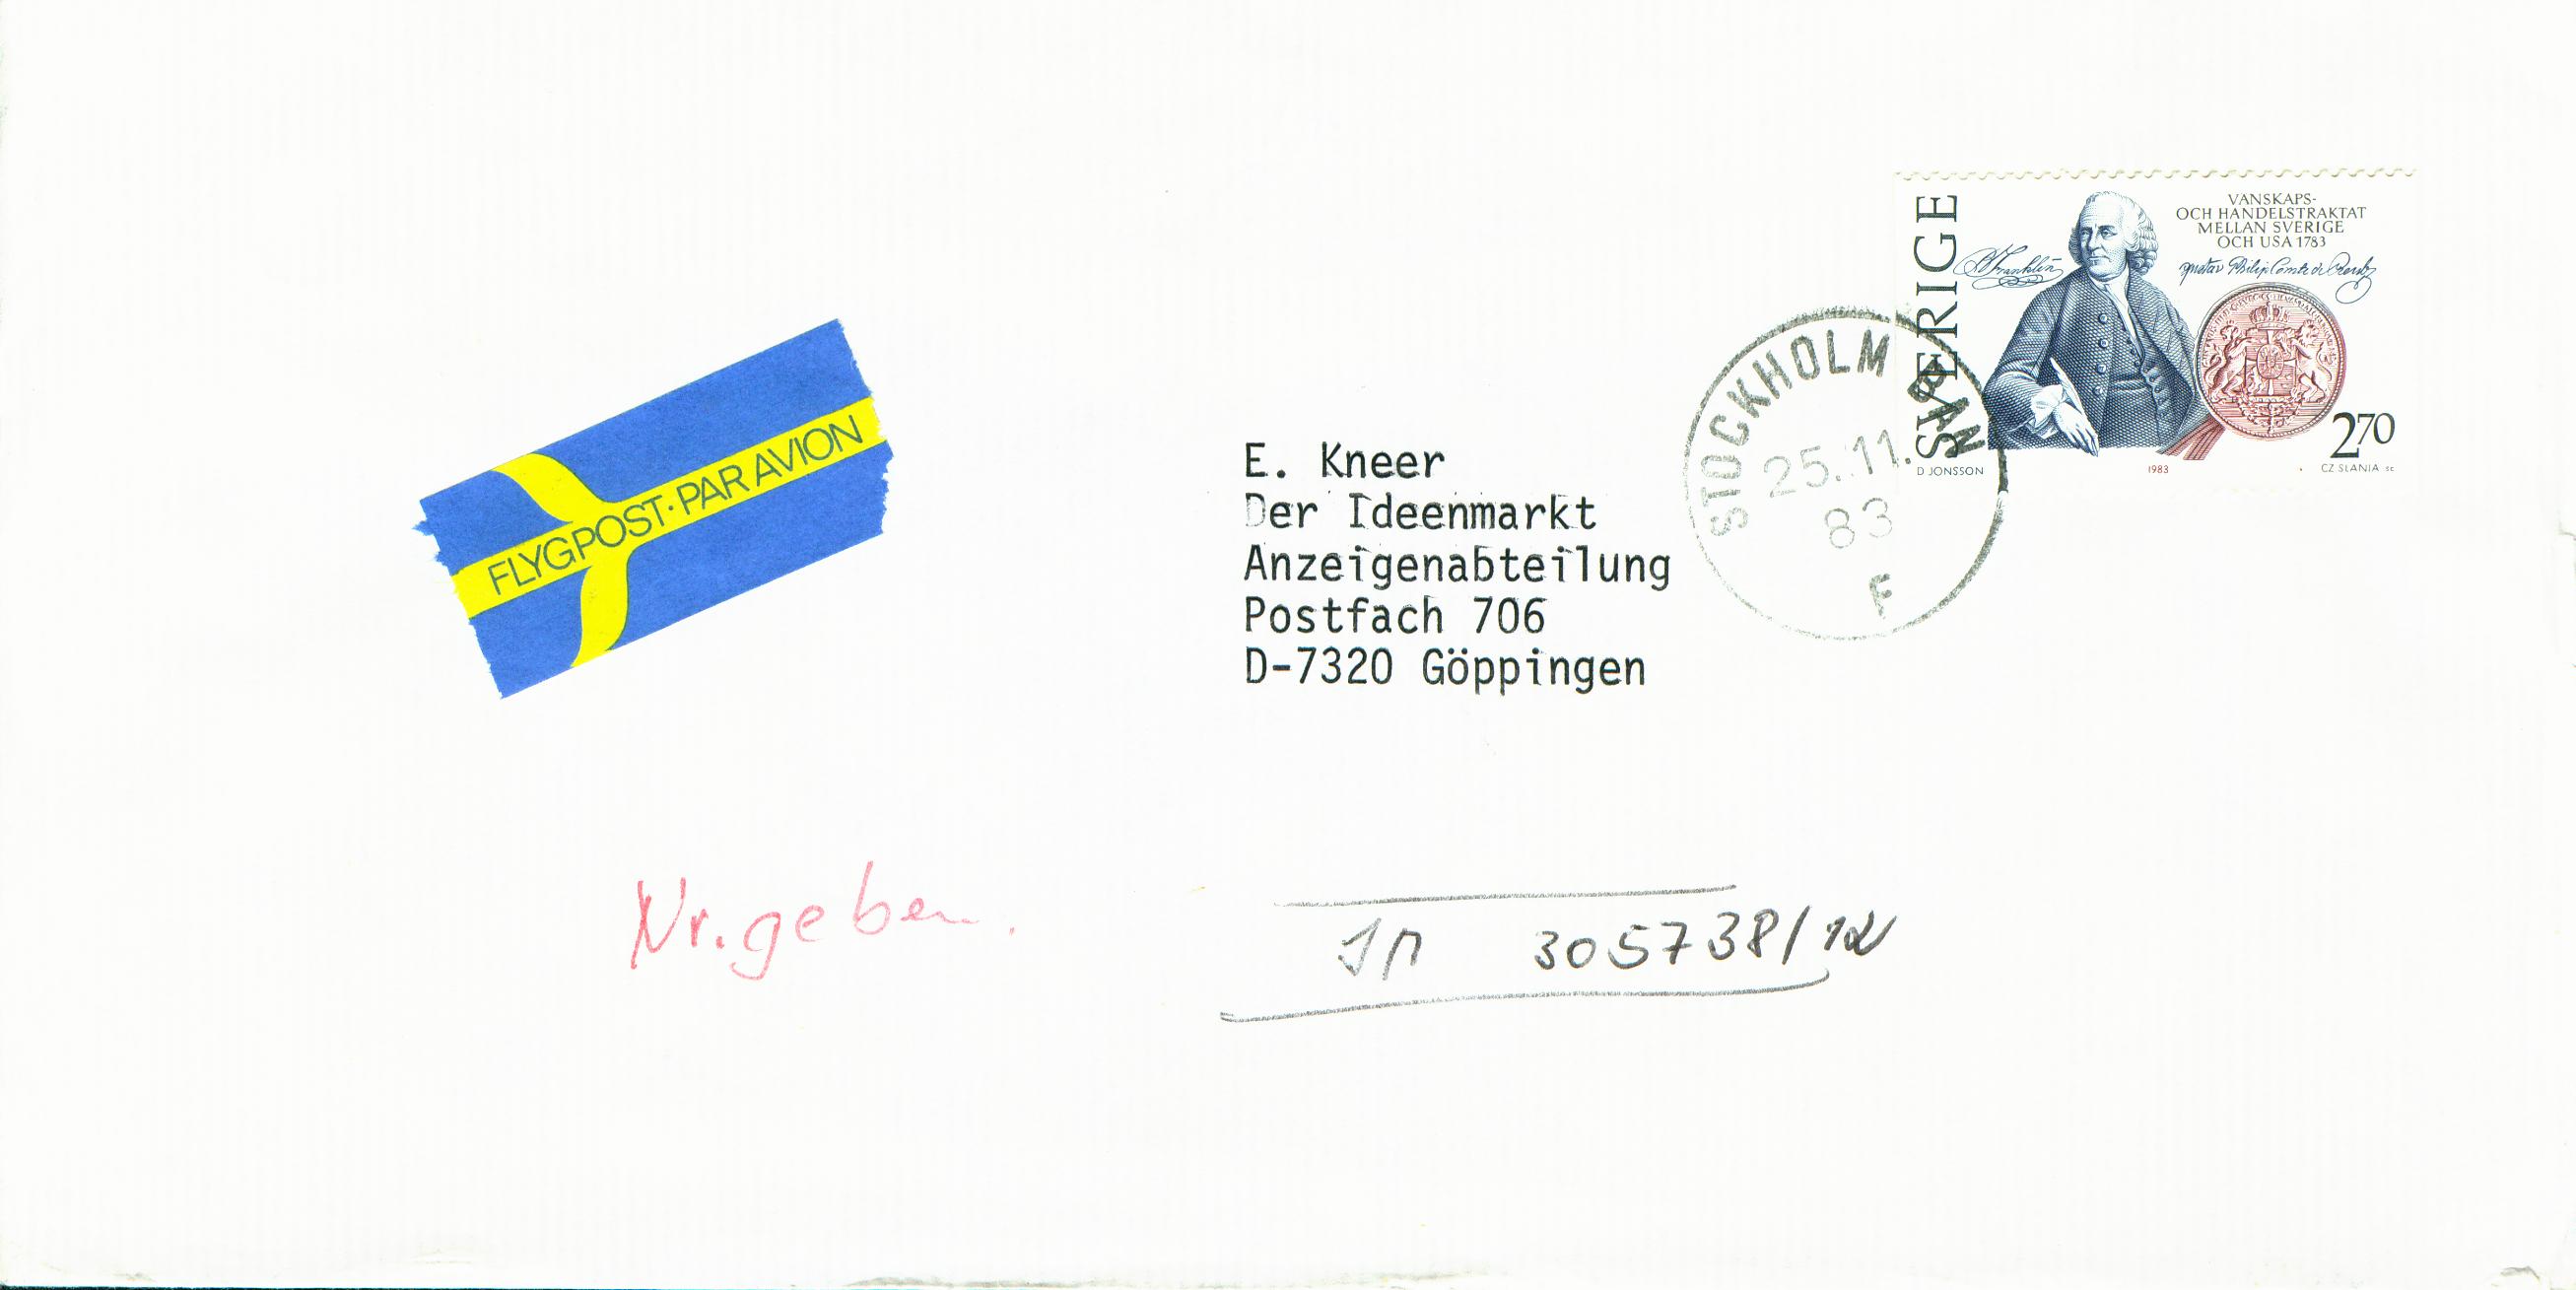 VÄNSKAPS-
OCH HANDELSTRAKTAT
MELLAN SVERIGE
OCH USA 1783
SVERIGE
B Franklin
gustav Philip Comte de Creutz
270
D JONSSON
1983
CZ SLANIA sc
STOCKHOLM BAN
25.11.
83
F
FLYGPOST·PAR AVION
E. Kneer
Der Ideenmarkt
Anzeigenabteilung
Postfach 706
D-7320 Göppingen
Nr. geben.
305738/12